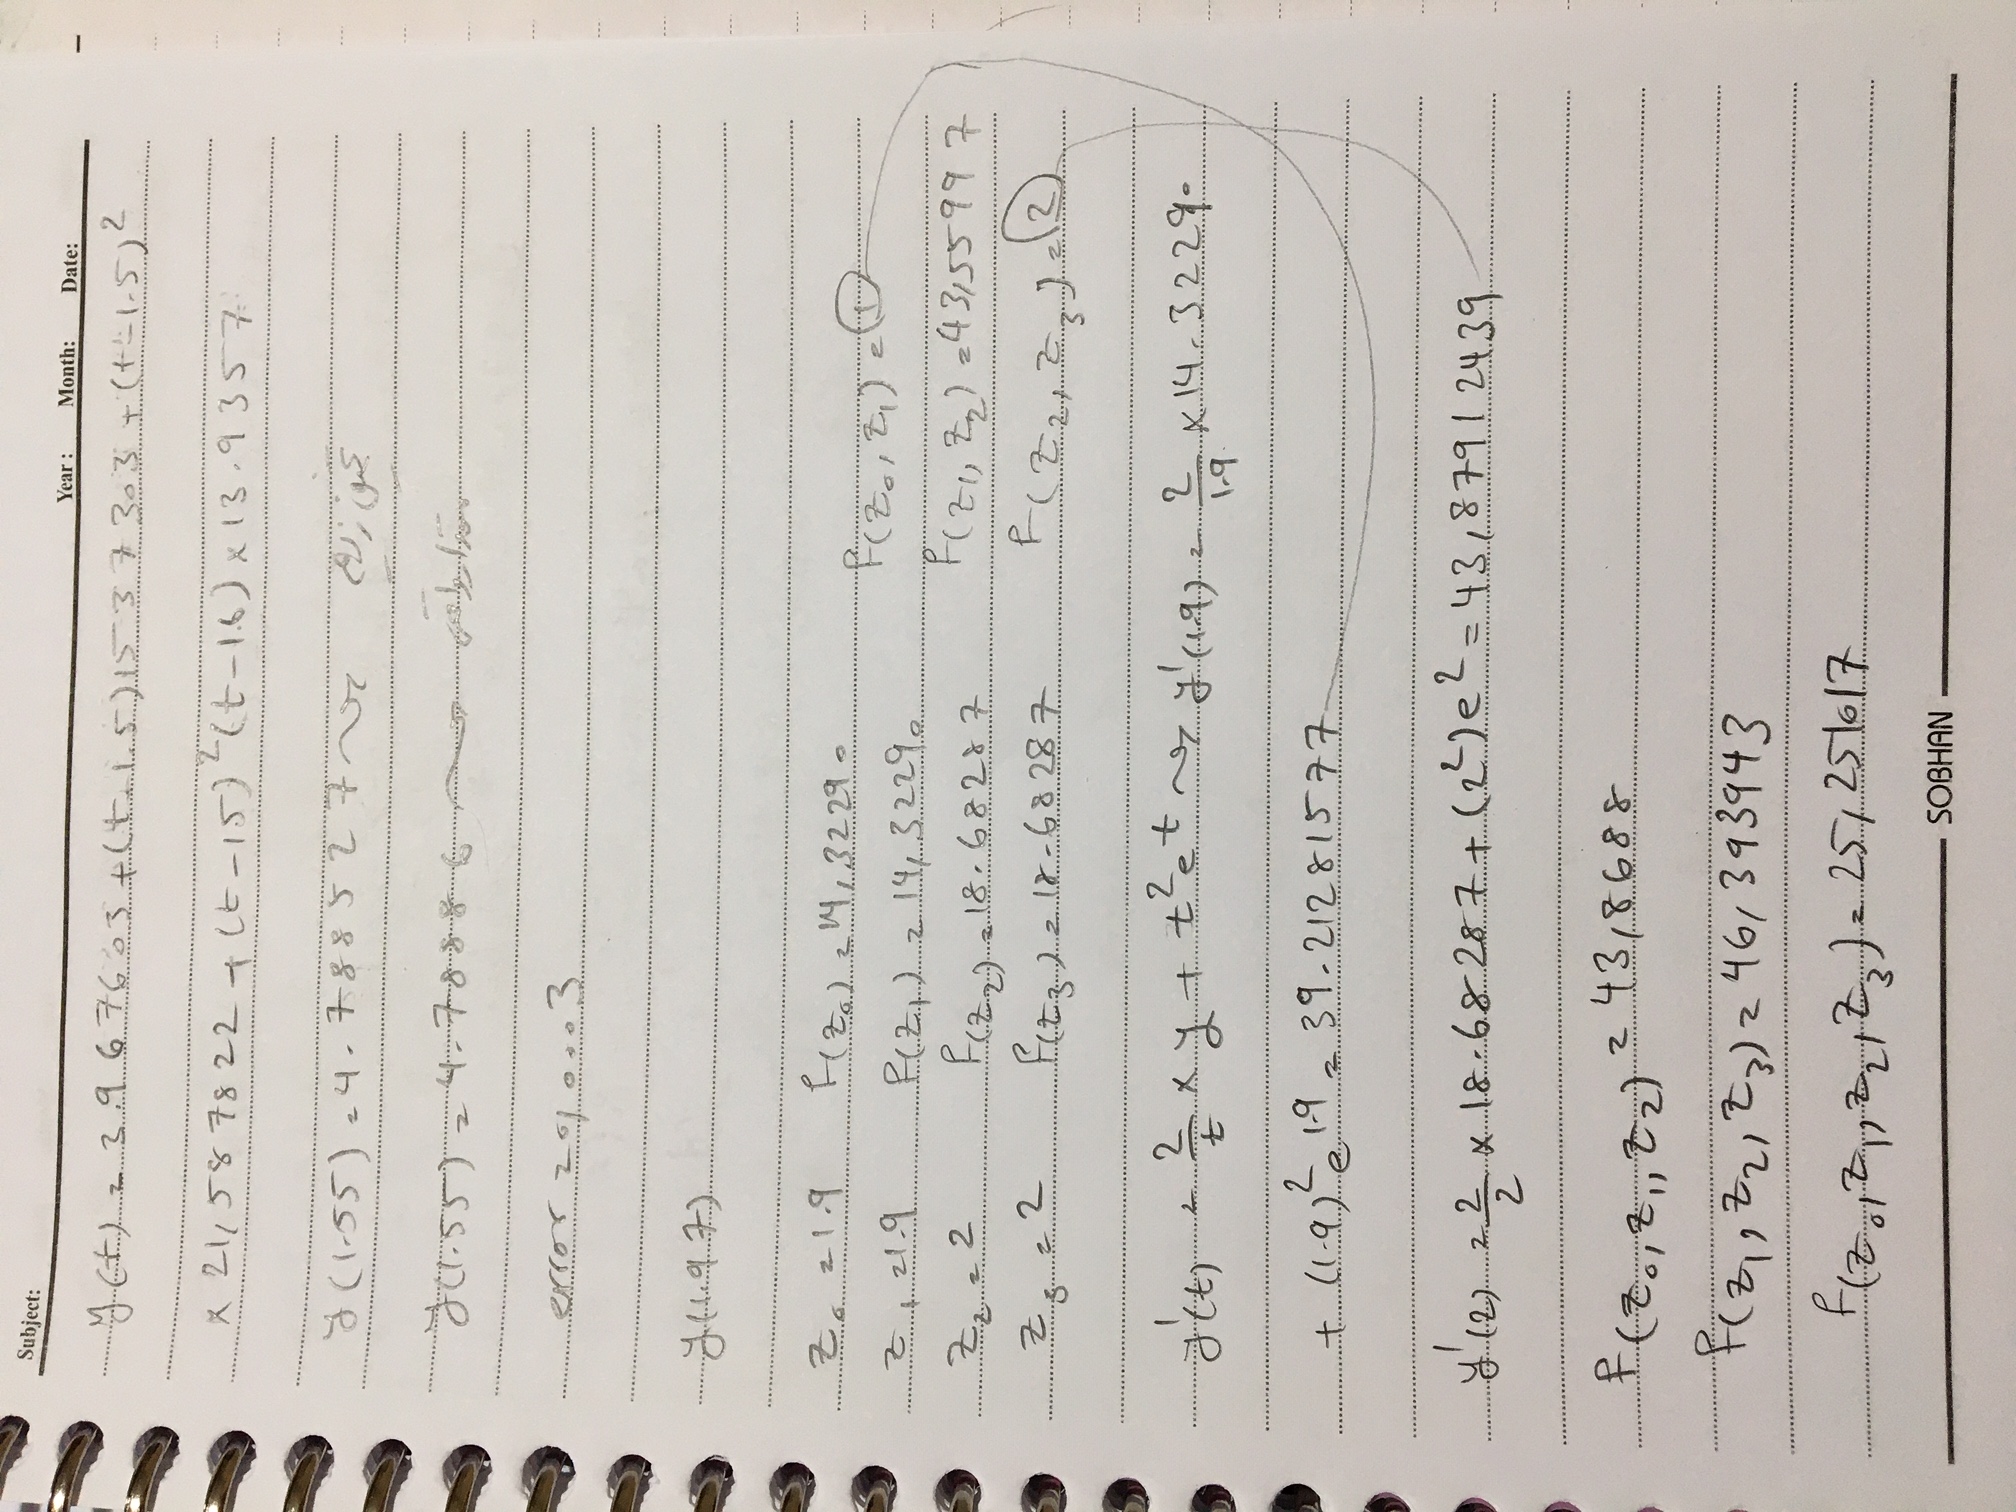 Subject:
Year: Month: Date:
y(t) = 3.967603 + (t-1.5)15.37303 + (t-1.5)²
× 21,587822 + (t-15)²(t-1.6) × 13.9357
y(1.55) = 4.788527 ⇝ تقریبی
y(1.55) = 4.78886
error = %0.003
y(1.97)
z₀ = 1.9 f(z₀) = 14,32290 f(z₀,z₁) = ①
z₁ = 1.9 f(z₁) = 14,32290 f(z₁,z₂) = 43,55997
z₂ = 2 f(z₂) = 18.68287 f(z₂,z₃) = ②
z₃ = 2 f(z₃) = 18.68287
y'(t) = 2/t × y + t²eᵗ ⇝ y'(1.9) = 2/1.9 × 14.32290
+ (1.9)²e^1.9 = 39.21281577
y'(2) = 2/2 × 18.68287 + (2²)e² = 43,879112439
f(z₀,z₁,z₂) = 43,8688
f(z₁,z₂,z₃) = 46,393943
f(z₀,z₁,z₂,z₃) = 25,25617
SOBHAN